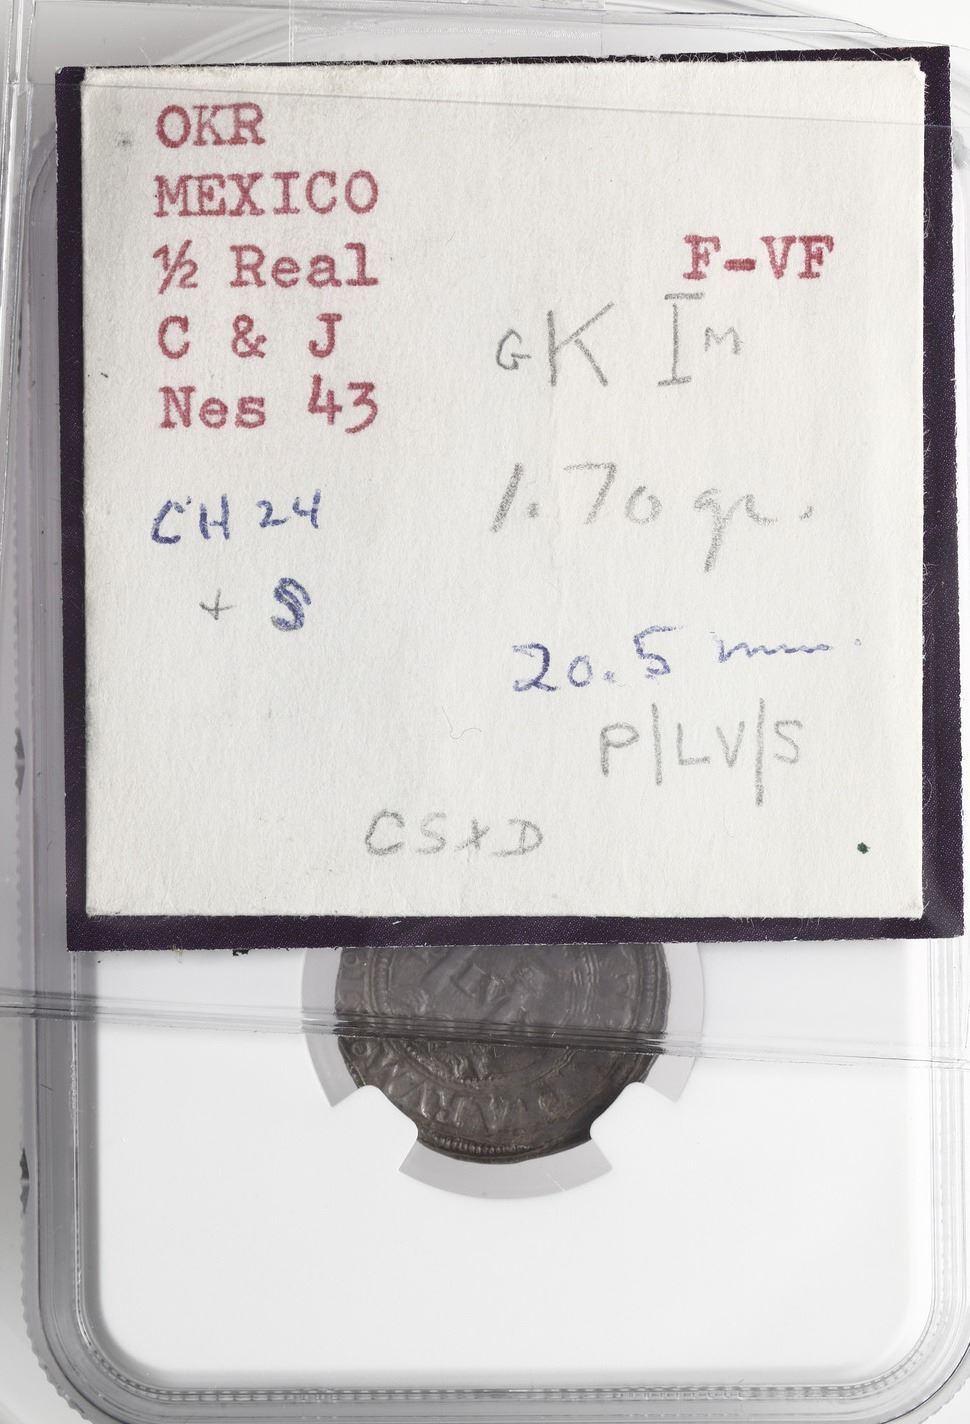 OKR
MEXICO
½ Real
F-VF
C & J
GK IM
Nes 43
CH 24
1.70 gr.
+ S
20.5 mm.
P|LV|S
CS+D